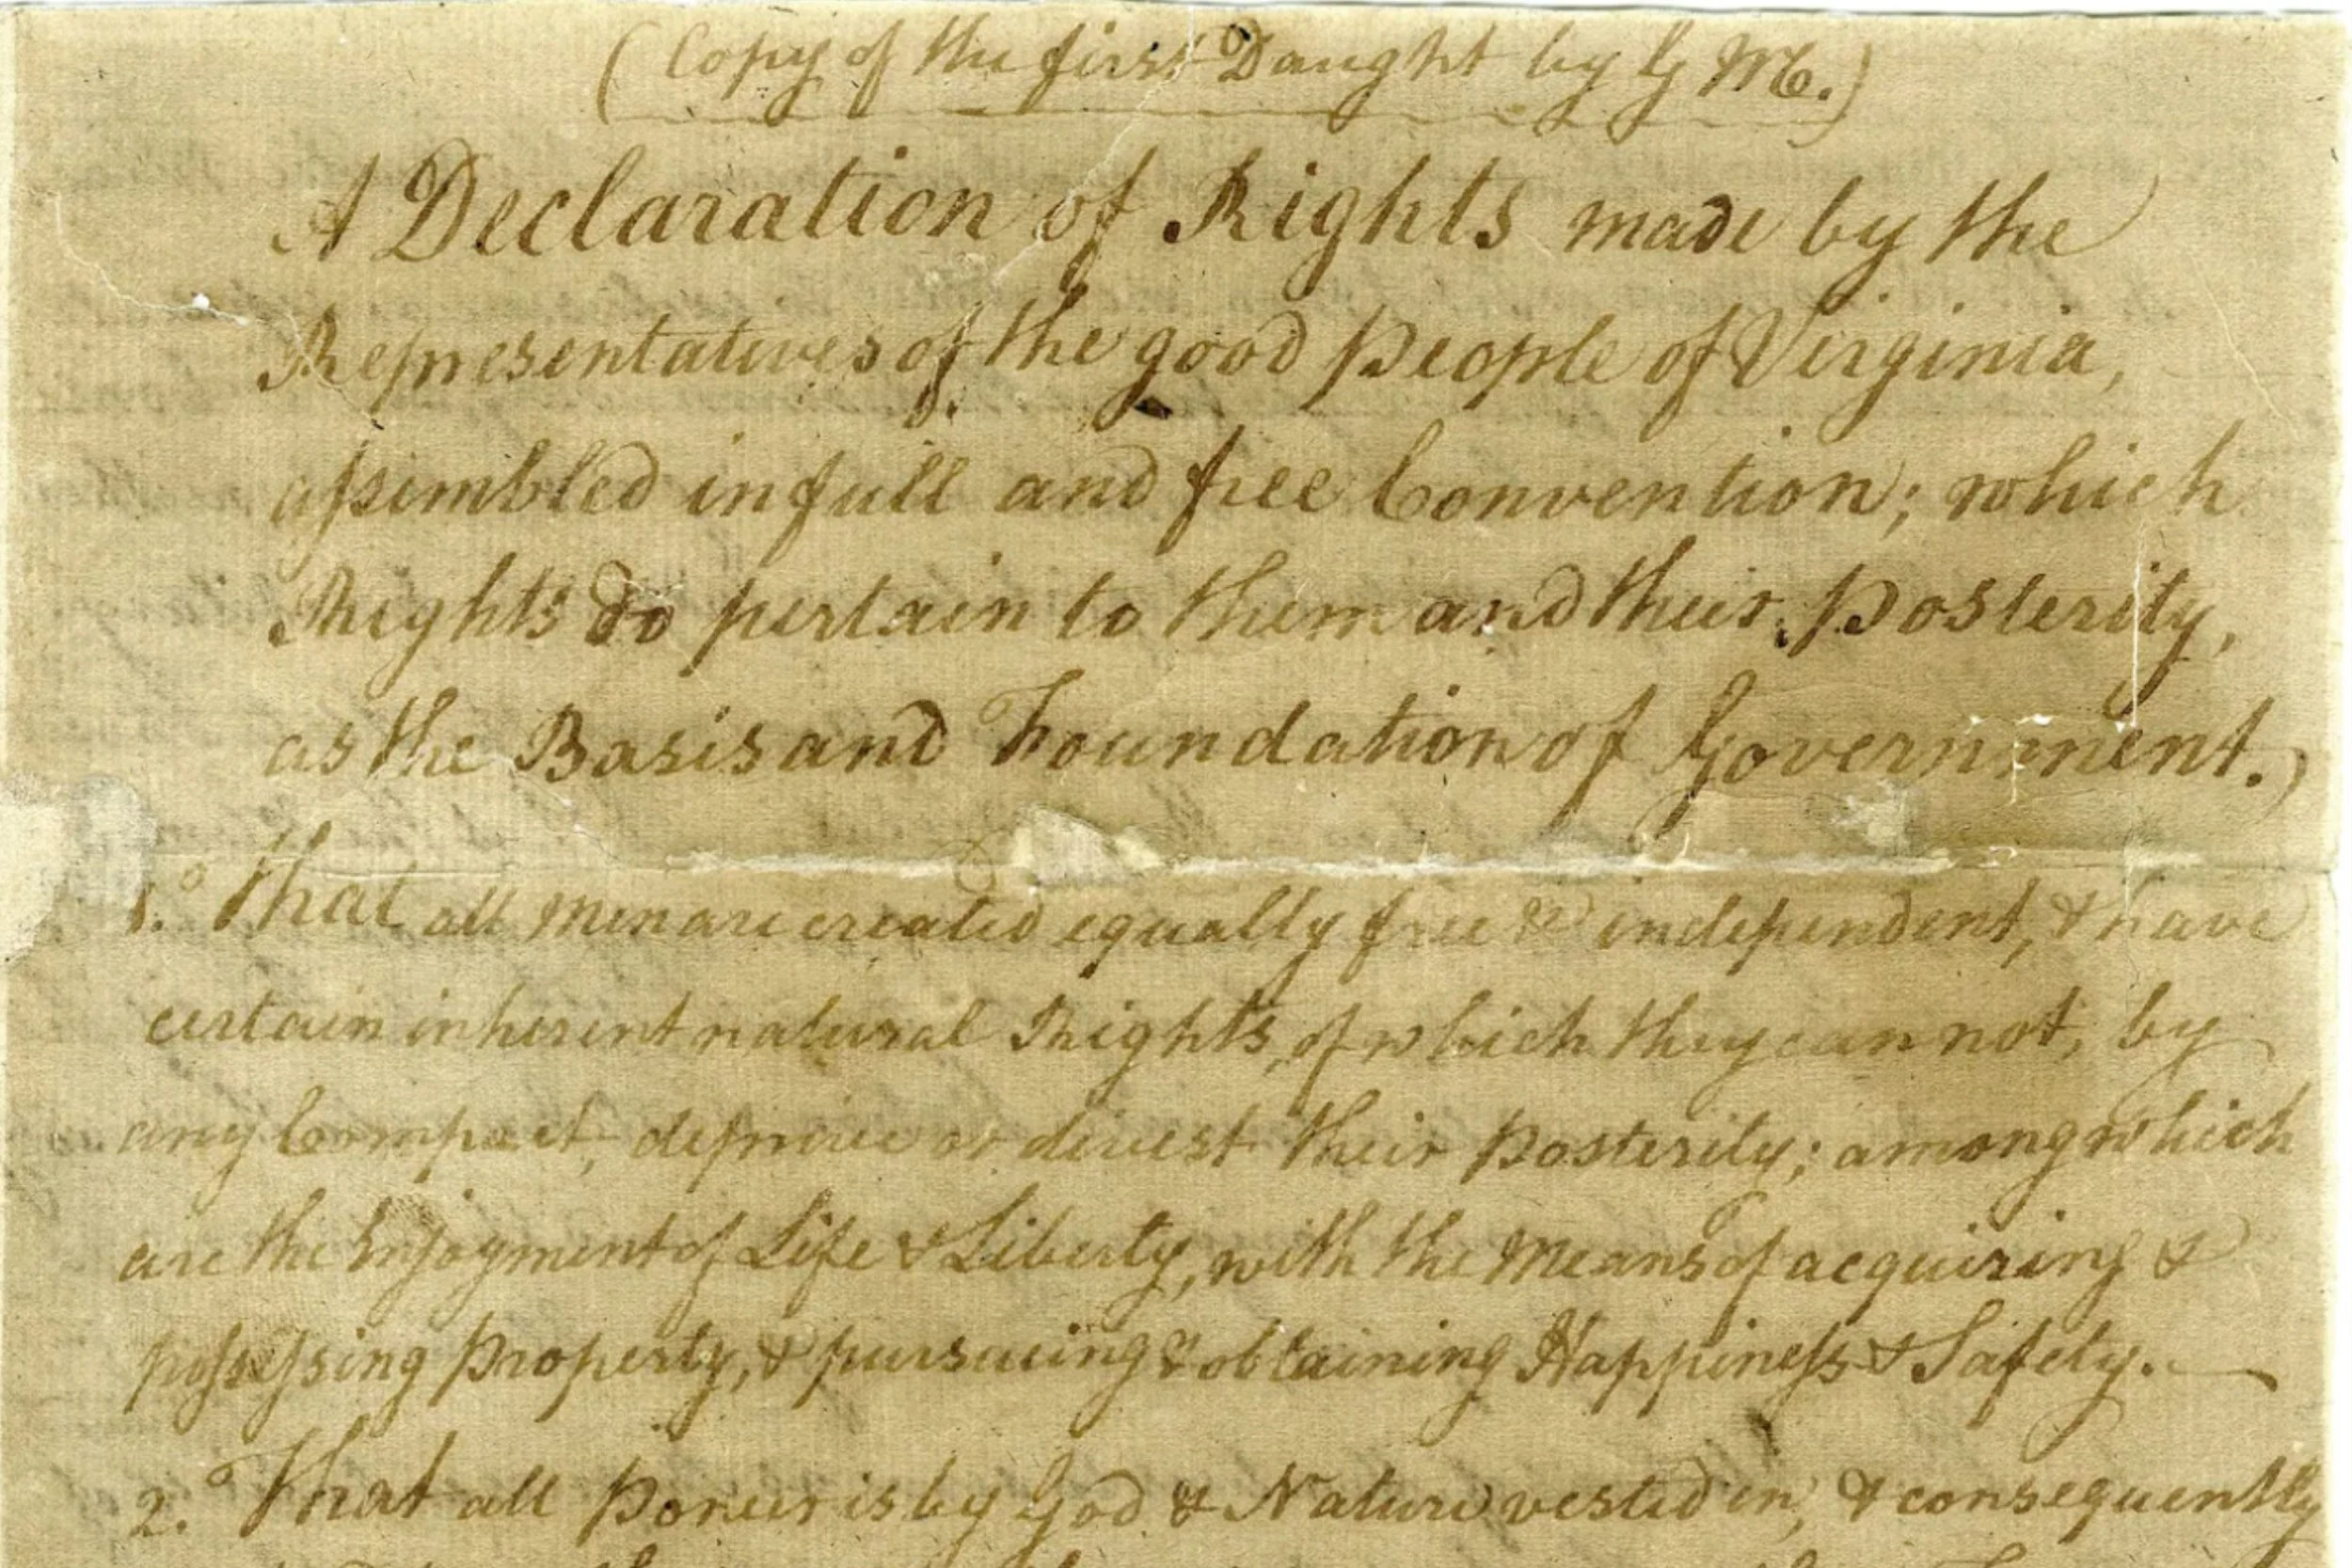 (Copy of the first Daught by G M.)
A Declaration of Rights made by the
Representatives of the good People of Virginia,
assembled in full and free Convention; which
Rights do pertain to them and their Posterity,
as the Basis and Foundation of Government.)
1.º That all Men are created equally free & independent, & have
certain inherent natural Rights, of which they can not, by
any Compact, deprive or divest their Posterity; among which
are the Enjoyment of Life & Liberty, with the Means of acquiring &
possessing Property, & pursueing & obtaining Happiness & Safety.
2.º That all Power is by God & Nature vested in, & consequently